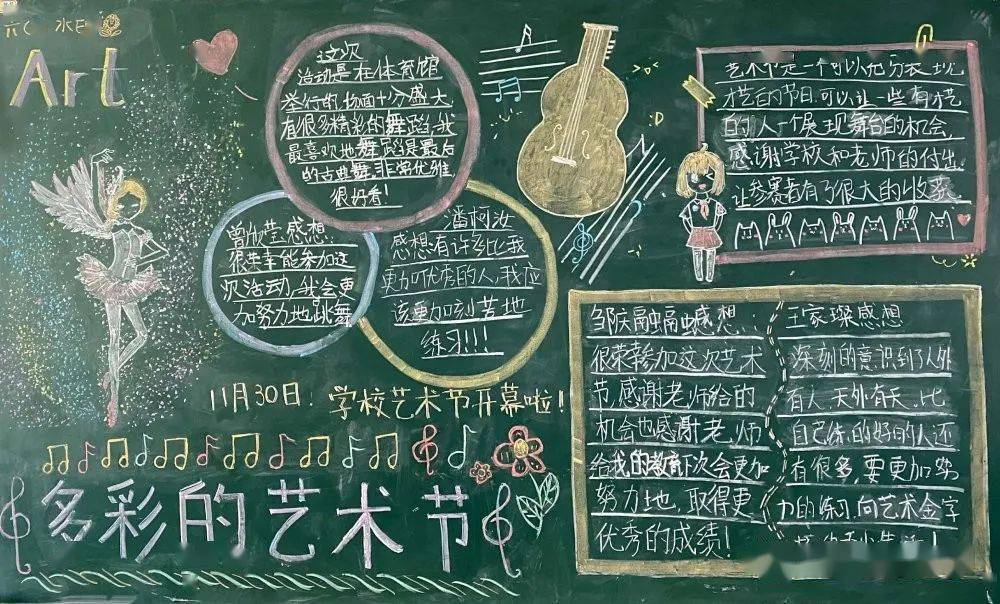 Art
这次
活动是在体育馆
举行的,场面十分盛大,
有很多精彩的舞蹈,我
最喜欢地舞蹈是最后
的古典舞,非常优雅,
很好看!
感想:
很荣幸能参加这
次活动,我会更
加努力地跳舞
潘柯汝
感想:有许多比我
更加优秀的人,我应
该更加刻苦地
练习!!!
艺术节是一个可以充分表现
才艺的节目,可以让一些有才艺
的人一个展现舞台的机会,
感谢学校和老师的付出,
让参赛者有了很大的收获
邹庆融感想:
很荣参加这次艺术
节,感谢老师给的
机会也感谢老师
给我的教育下次会更加
努力地,取得更
优秀的成绩!
王家琛感想
深刻的意识到了人外
有人,天外有天,比
自己练的好的人还
有很多,要更加努
力的练习,向艺术金字
11月30日,学校艺术节开幕啦!
多彩的艺术节